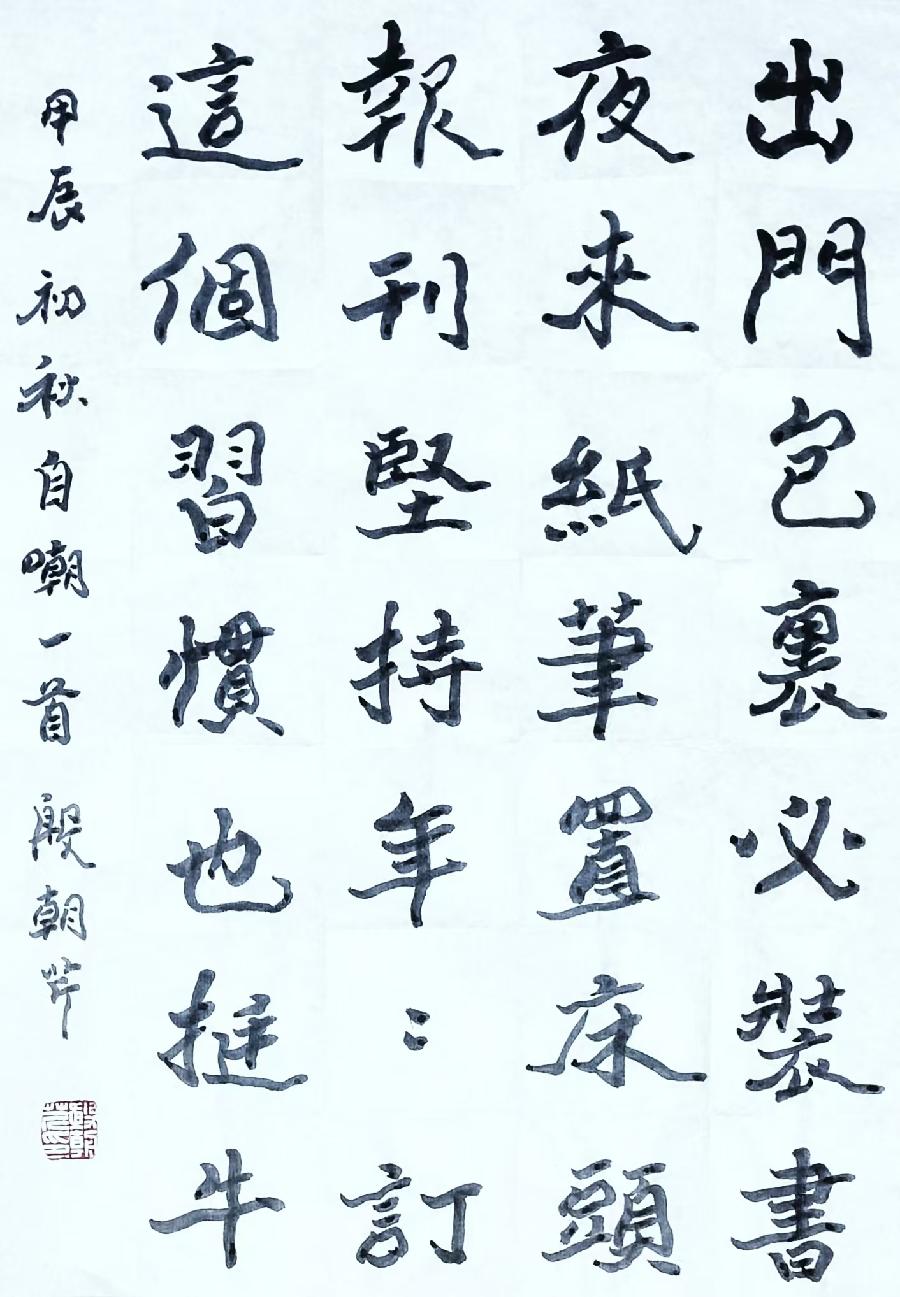 出門包裏必裝書
夜來紙筆置床頭
報刊堅持年〻訂
這個習慣也挺牛
甲辰初秋自嘲一首 殷朝芹